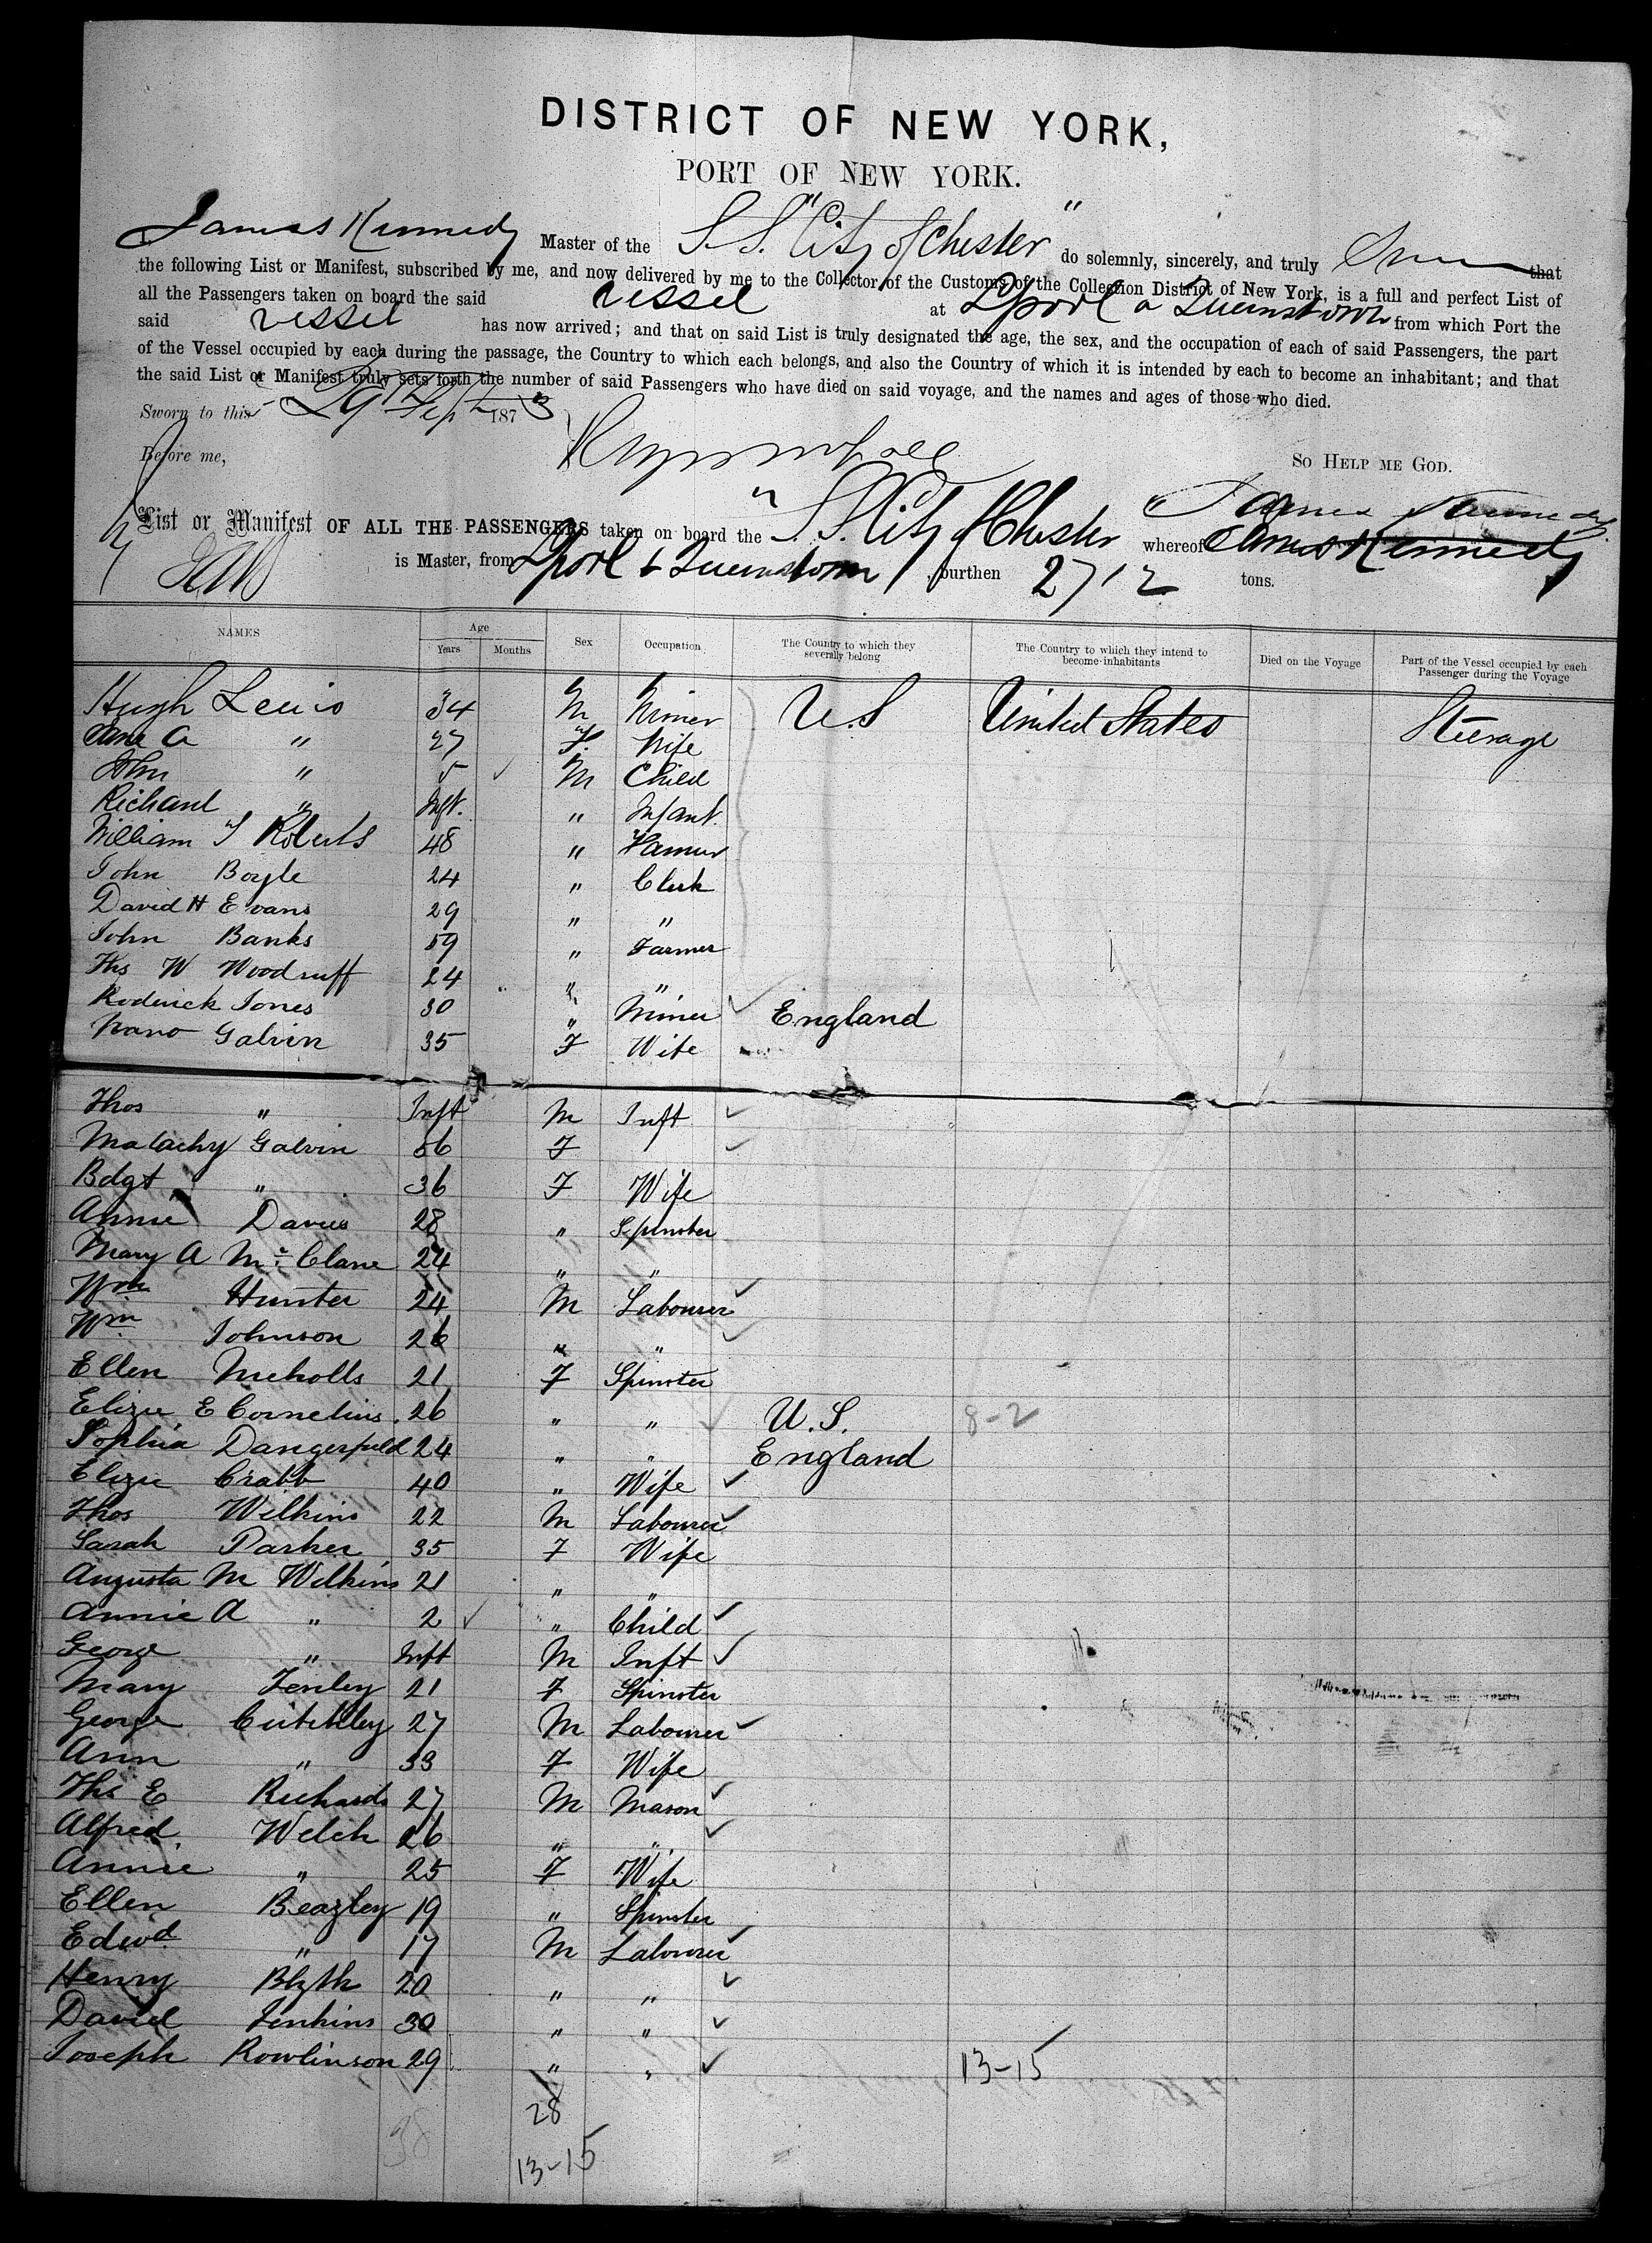 DISTRICT OF NEW YORK,
PORT OF NEW YORK.
I, James Kennedy Master of the S.S. "City of Chester" do solemnly, sincerely, and truly Swear that
the following List or Manifest, subscribed by me, and now delivered by me to the Collector of the Customs of the Collection District of New York, is a full and perfect List of
all the Passengers taken on board the said vessel at Lpool & Queenstown from which Port the
said vessel has now arrived; and that on said List is truly designated the age, the sex, and the occupation of each of said Passengers, the part
of the Vessel occupied by each during the passage, the Country to which each belongs, and also the Country of which it is intended by each to become an inhabitant; and that
the said List or Manifest truly sets forth the number of said Passengers who have died on said voyage, and the names and ages of those who died.
Sworn to this 29th Sept 1873
Before me,
So Help me God.
James Kennedy
List or Manifest OF ALL THE PASSENGERS taken on board the "S.S. City of Chester whereof James Kennedy
is Master, from Lpool & Queenstown, burthen 2712 tons.
NAMES Age Years Months Sex Occupation The Country to which they severally belong The Country to which they intend to become inhabitants Died on the Voyage Part of the Vessel occupied by each Passenger during the Voyage
Hugh Lewis 34 M Miner U.S United States Steerage
Jane A " 27 F. Wife
John " 5 ✓ M Child
Richard " Inft. " Infant
William J Roberts 48 " Farmer
John Boyle 24 " Clerk
David H Evans 29 " "
John Banks 59 " Farmer
Ths W Woodruff 24 " "
Roderick Jones 30 " Miner ✓ England
Nano Galvin 35 F Wife
Thos " Inft M Inft ✓
Malachy Galvin 56 F ✓
Bdgt " 36 F Wife
Annie Davies 28 " Spinster
Mary A Mc Clane 24 " "
Wm Hunter 24 M Labourer ✓
Wm Johnson 26 " " ✓
Ellen Nicholls 21 F Spinster
Elizie E Cornelius 26 " " ✓ U.S. 8-2
Sophia Dangerfield 24 " " England
Elizie Crabb 40 " Wife ✓
Thos Wilkins 22 M Labourer ✓
Sarah Parker 35 F Wife
Augusta M Wilkins 21 " "
Annie A " 2 ✓ " Child ✓
George " Inft M Inft ✓
Mary Fenley 21 F Spinster
George Critchley 27 M Labourer ✓
Ann " 33 F Wife
Ths E Richards 27 M Mason ✓
Alfred Welch 26 " " ✓
Annie " 25 F Wife
Ellen Beazley 19 " Spinster
Edwd " 17 M Labourer ✓
Henry Blyth 20 " " ✓
David Jenkins 30 " " ✓
Joseph Rowlinson 29 " " ✓ 13-15
38 28
13-15